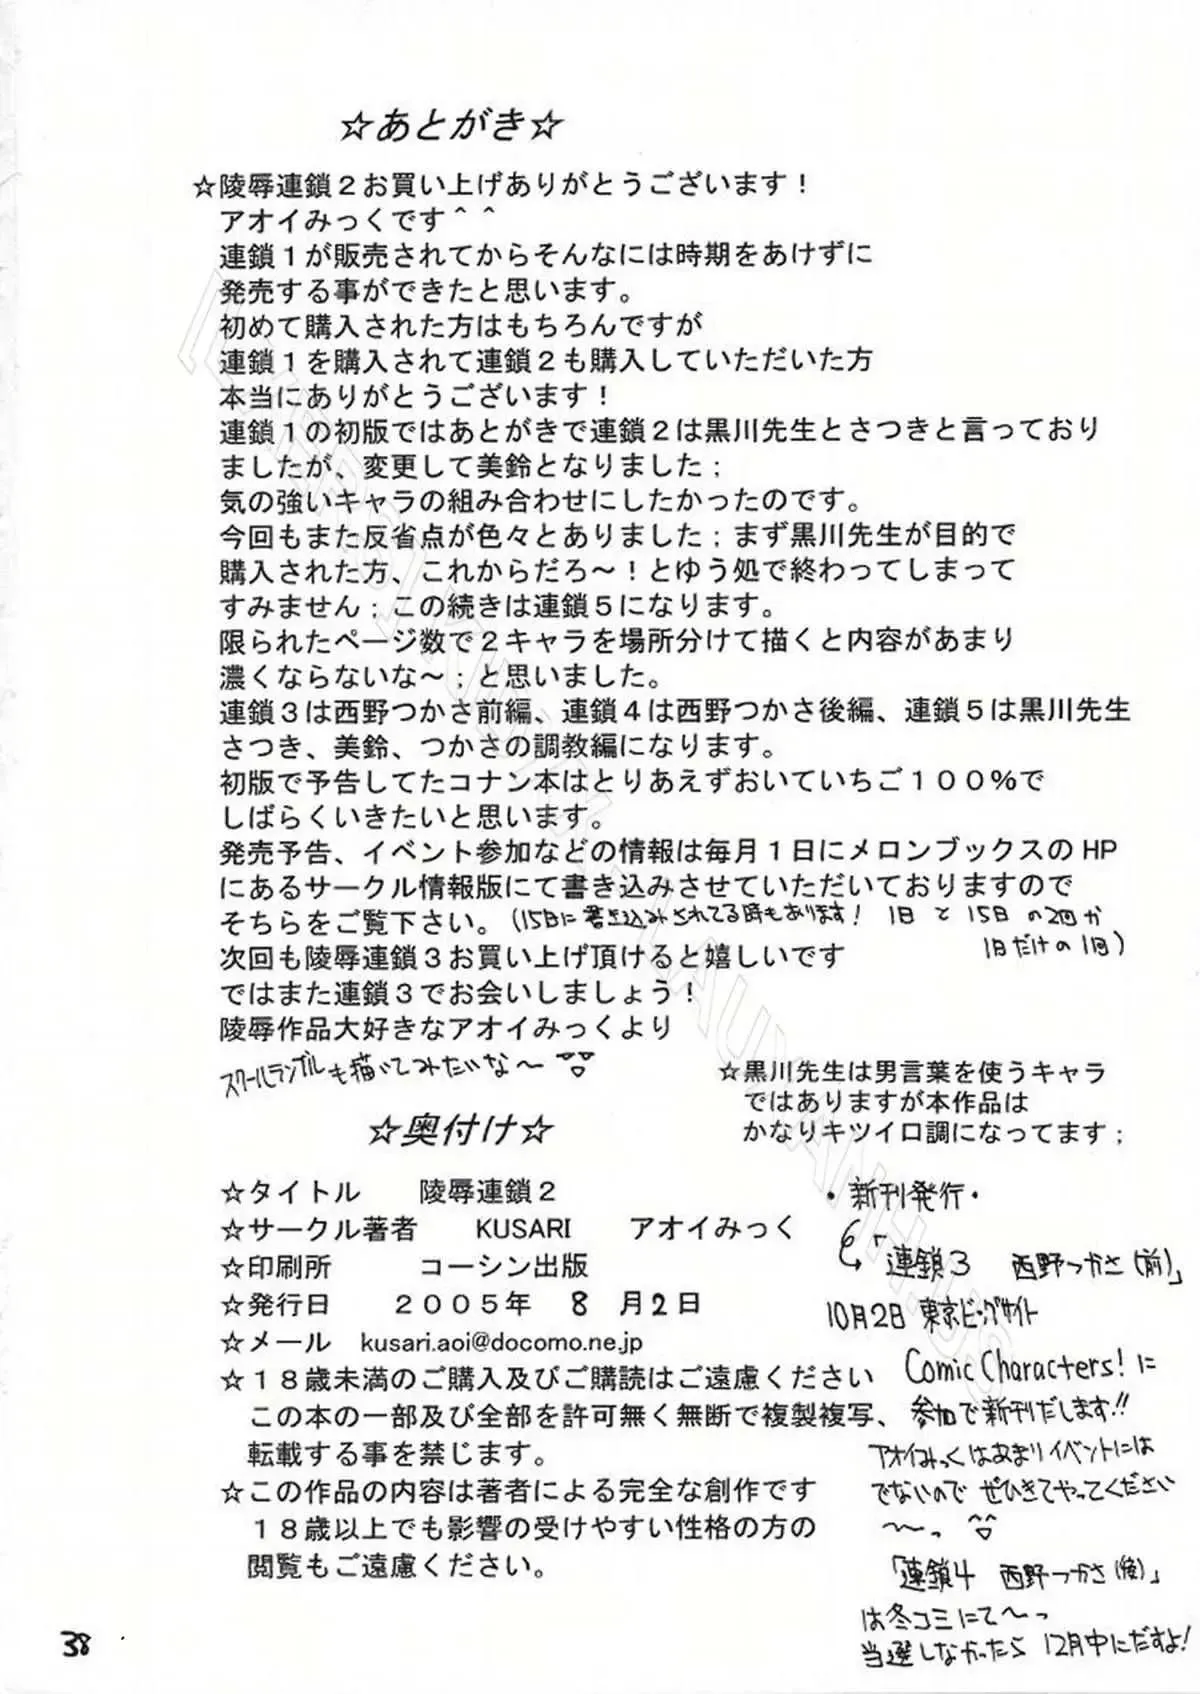 ☆あとがき☆
☆陵辱連鎖２お買い上げありがとうございます！
アオイみっくです＾＾
連鎖１が販売されてからそんなには時期をあけずに
発売する事ができたと思います。
初めて購入された方はもちろんですが
連鎖１を購入されて連鎖２も購入していただいた方
本当にありがとうございます！
連鎖１の初版ではあとがきで連鎖２は黒川先生とさつきと言っており
ましたが、変更して美鈴となりました；
気の強いキャラの組み合わせにしたかったのです。
今回もまた反省点が色々とありました；まず黒川先生が目的で
購入された方、これからだろ～！とゆう処で終わってしまって
すみません；この続きは連鎖５になります。
限られたページ数で２キャラを場所分けて描くと内容があまり
濃くならないな～；と思いました。
連鎖３は西野つかさ前編、連鎖４は西野つかさ後編、連鎖５は黒川先生
さつき、美鈴、つかさの調教編になります。
初版で予告してたコナン本はとりあえずおいていちご１００％で
しばらくいきたいと思います。
発売予告、イベント参加などの情報は毎月１日にメロンブックスのHP
にあるサークル情報版にて書き込みさせていただいておりますので
そちらをご覧下さい。（15日に書き込みされてる時もあります！ 1日と15日の2回か
1日だけの1回）
次回も陵辱連鎖３お買い上げ頂けると嬉しいです
ではまた連鎖３でお会いしましょう！
陵辱作品大好きなアオイみっくより
スクールランブルも描いてみたいな～
☆黒川先生は男言葉を使うキャラ
ではありますが本作品は
かなりキツイ口調になってます；
☆奥付け☆
☆タイトル　陵辱連鎖２
☆サークル著者　KUSARI　アオイみっく
☆印刷所　コーシン出版
☆発行日　２００５年　8　月2日
☆メール　kusari.aoi@docomo.ne.jp
☆１８歳未満のご購入及びご購読はご遠慮ください
この本の一部及び全部を許可無く無断で複製複写、
転載する事を禁じます。
☆この作品の内容は著者による完全な創作です
１８歳以上でも影響の受けやすい性格の方の
閲覧もご遠慮ください。
・新刊発行・
「連鎖3　西野つかさ（前）」
10月2日 東京ビッグサイト
Comic Characters!に
参加で新刊だします!!
アオイみっくはあまりイベントには
でないので ぜひきてやってください
～っ
「連鎖4　西野つかさ（後）」
は冬コミにて～っ
当選しなかったら 12月中にだすよ!
38